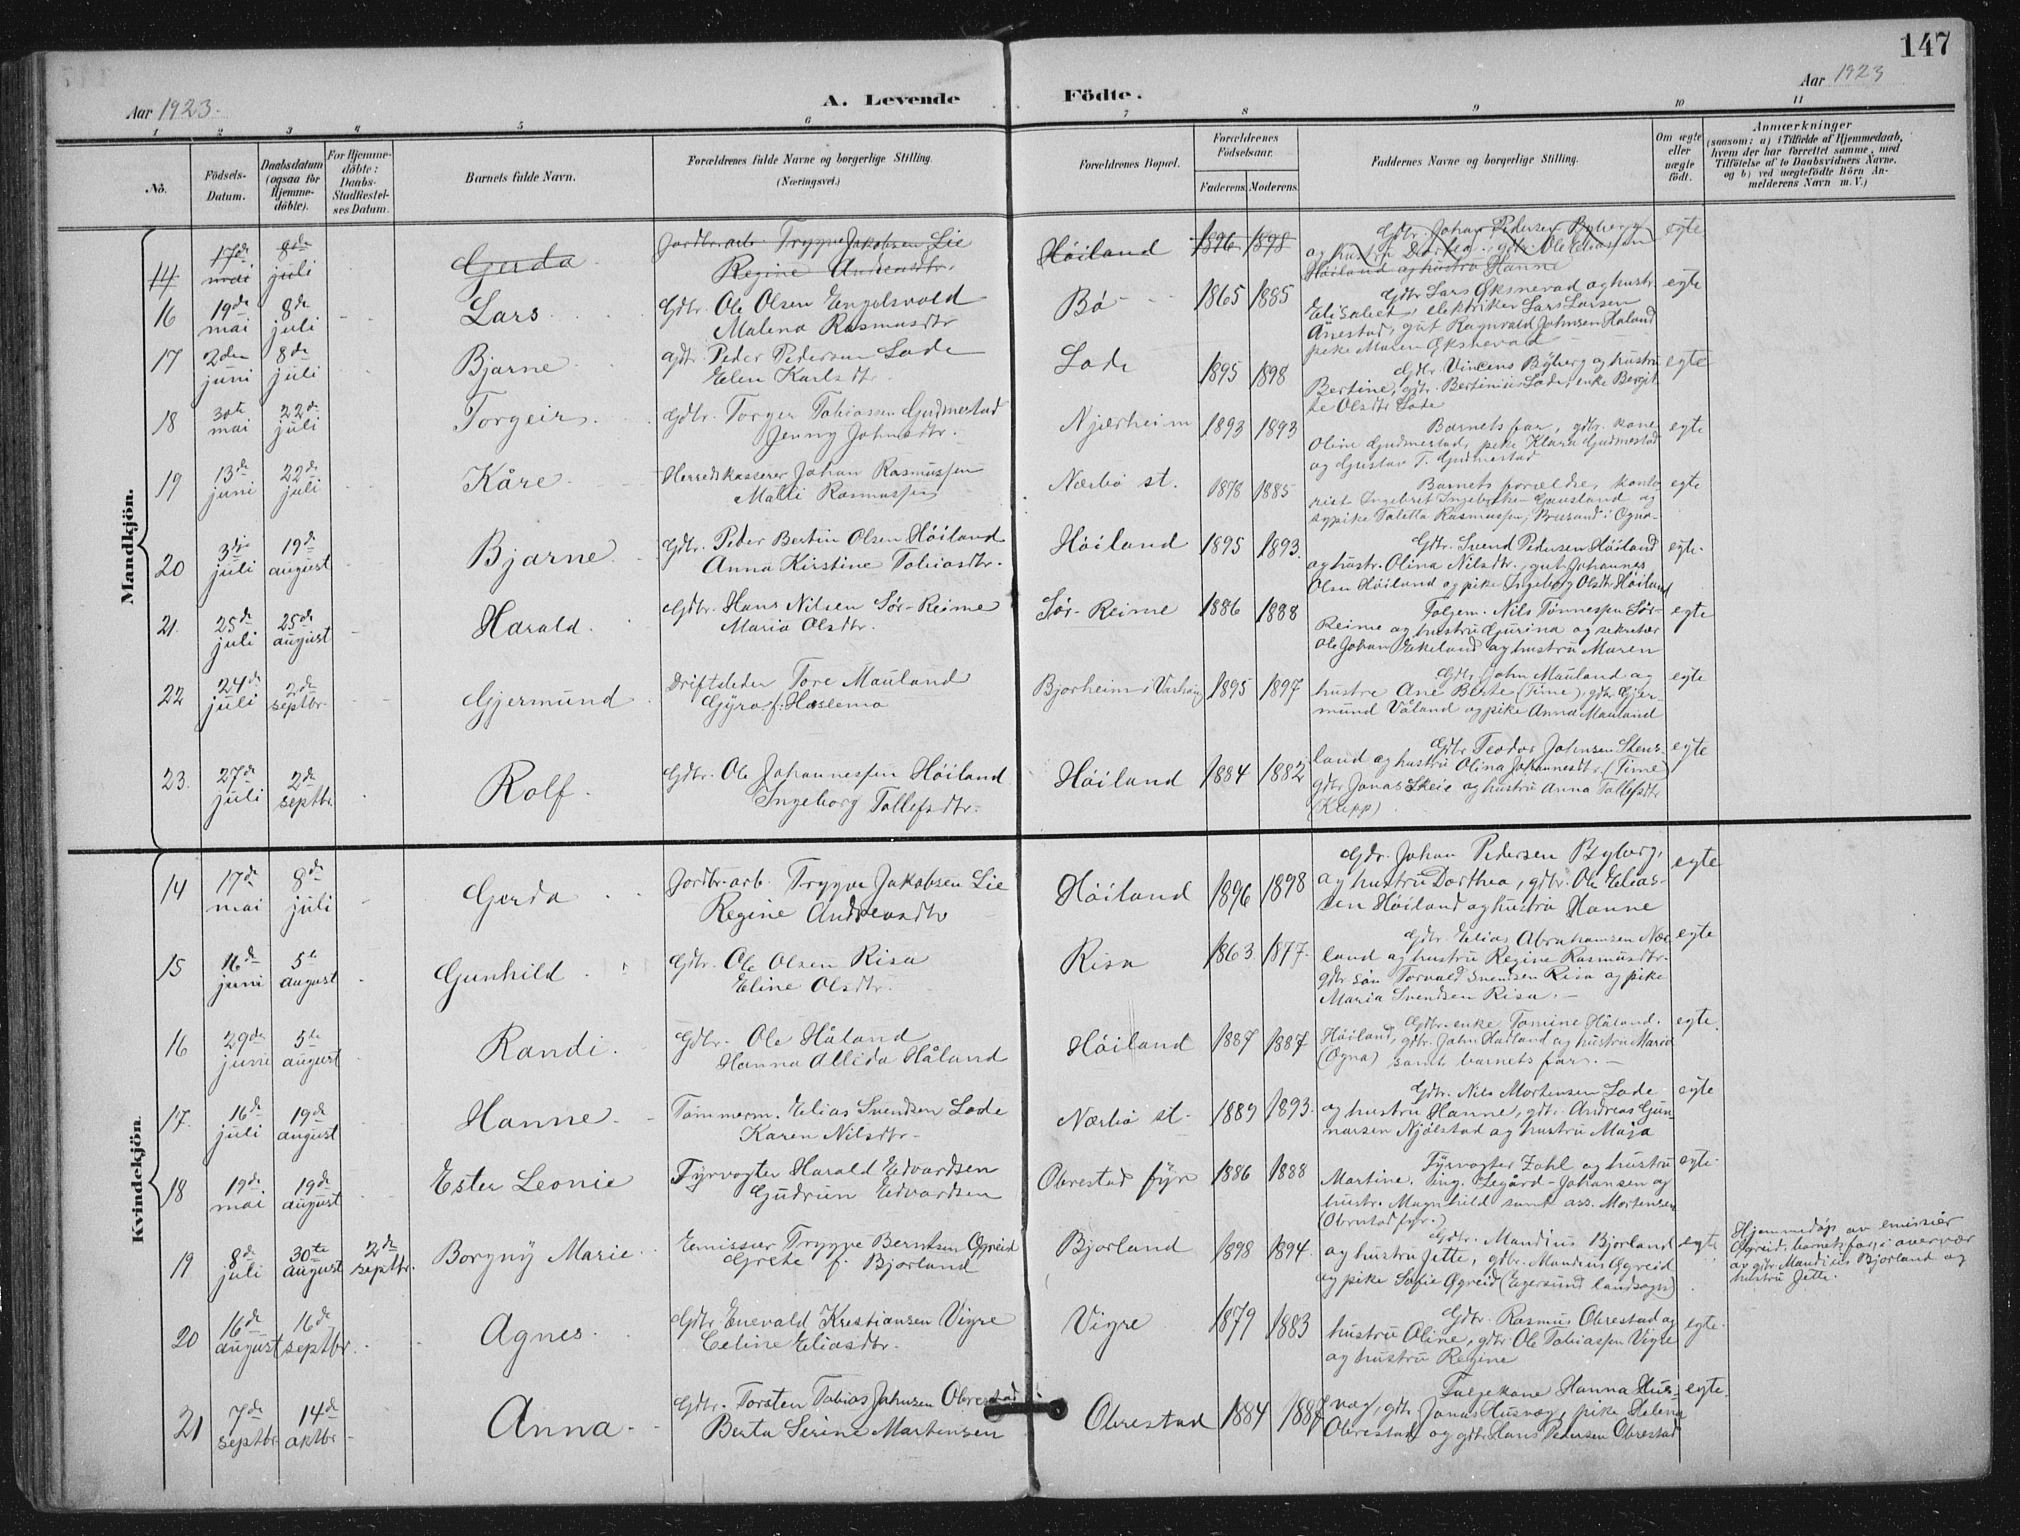 147
Aar 1923.
A. Levende
Födte.
Aar 1923
1 2 3 4 5 6 7 8 9 10 11
No.
Födsels-
Datum.
Daabsdatum
(ogsaa for
Hjemme-
döbte).
For Hjemme-
döbte:
Daabs-
Stadfæstel-
ses Datum.
Barnets fulde Navn.
Forældrenes fulde Navne og borgerlige Stilling.
(Næringsvei.)
Forældrenes Bopæl.
Forældrenes
Födselsaar.
Faderens. Moderens.
Faddernes Navne og borgerlige Stilling.
Om ægte
eller
uægte
födt.
Anmærkninger
(saasom: a) i Tilfælde af Hjemmedaab,
hvem der har forrettet samme, med
Tilföielse af to Daabsvidners Navne.
og b) ved uægtefödte Börn An-
melderens Navn m. V.)
Mandkjön.
14
17de mai
8de juli
Gerda
Jordbr.arb. Trygve Jakobsen Lie
Regine Andreasdtr.
Höiland
1896 1898
Gdbr. Johan Pedersen Byberg
og hustru Dorthea, gdbr. Ole Eliassen
Höiland og hustru Hanne
egte
16
19de mai
8de juli
Lars
Gdbr. Ole Olsen Engelsvold
Malena Rasmusdtr
Bö
1865 1885
Gdbr Lars Öksnevad og hustr.
Elisabet, elektriker Lars Larsen
Ånestad, gut Ragnvald Johnsen Håland
pike Maren Öksnevad
egte
17
2den juni
8de juli
Bjarne
Gdbr. Peder Pedersen Lode
Elen Karlsdtr.
Lode
1895 1898
Gdbr Vincens Byberg og hustru
Bertine, gdbr. Bertinius Lode, enke Bergit-
te Olsdtr Lode
egte
18
30te mai
22de juli
Torgeir
Gdbr. Torger Tobiassen Gudmestad
Jenny Johnsdtr.
Njærheim
1893 1893
Barnets far, gdbr. kone
Oline Gudmestad, pike Klara Gudmestad
og Gustav T. Gudmestad
egte
19
13de juni
22de juli
Kåre
Herredskasserer Johan Rasmussen
Malli Rasmussen
Nærbö st.
1878 1885
Barnets forældre, konto-
rist Ingebret Ingebretsen Gausland og
sypike Taletta Rasmussen, Brusand i Ogna
egte
20
3dje juli
19de august
Bjarne
Gdbr. Peder Bertin Olsen Höiland
Anna Kirstine Tobiasdtr.
Höiland
1895 1893.
Gdbr. Svend Pedersen Höiland
og hustr. Olina Nilsdtr., gut Johannes
Olsen Höiland og pike Ingeborg Olsdtr Höiland
egte.
21.
25de juli
25de august
Harald.
Gdbr. Hans Nilsen Sör-Reime
Maria Olsdtr.
Sör-Reime
1886 1888
Folgem. Nils Tönnessen Sör-
Reime og hustru Gurina og sekretær
Ole Johan Ekeland og hustru Maren
egte
22
24de juli
2de septbr.
Gjermund
Driftsleder Tore Mauland
Gyro f. Haslemo
Bjorheim i Varhaug
1895 1897
Gdbr. John Mauland og
hustru Ane Berte (Time), gdbr Gjer-
mund Våland og pike Anna Mauland
egte
23.
27de juli
2de septbr.
Rolf.
Gdbr. Ole Johannessen Höiland
Ingeborg Tollefsdtr.
Höiland
1884 1882
Gdbr Teodor Johnsen Stens-
land og hustru Olina Johannesdtr (Time)
gdbr Jonas Skeie og hustru Anna Tollefsdtr
(Klepp)
egte
Kvindekjön.
14
17de mai
8de juli
Gerda
Jordbr.arb. Trygve Jakobsen Lie
Regine Andreasdtr
Höiland
1896 1898
Gdbr. Johan Pedersen Byberg,
og hustru Dorthea, gdbr. Ole Elias-
sen Höiland og hustru Hanne
egte
15
16de juni
5te august
Gunhild
Gdbr. Ole Olsen Risa
Eline Olsdtr.
Risa
1863 1877.
Gdbr. Elias Abrahamsen Nær-
land og hustru Regine Rasmusdtr.
gdbr.sön Torvald Svendsen Risa og pike
Maria Svendsen Risa.
egte
16
29de juni
5te august
Randi.
Gdbr. Ole Håland
Hanna Allida Håland
Höiland
1887 1887
Gdbr.enke Tomine Håland.
Höiland, gdbr. John Håland og hustru Maria
(Ogna) samt barnets far.
egte.
17.
16de juli
19de august
Hanne
Tömmerm. Elias Svendsen Lode
Karen Nilsdtr.
Nærbö st.
1889 1893.
Gdbr. Nils Mortensen Lode
og hustru Hanne, gdbr. Andreas Gun-
narsen Njölstad og hustru Maja
egte
18
19de mai
19de august
Ester Leonie
Fyrvogter Harald Edvardsen
Gudrun Edvardsen
Obrestad fyr
1886 1888
Fyrvogter Zahl og hustru
Martine, ing. Legård-Johansen og
hustr. Magnhild samt ass. Mortensen
(Obrestad fyr.)
egte
19
8de juli
30te august
2de septbr.
Borgny Marie
Emissær Trygve Berntsen Ögreid
Grete f. Bjorland
Bjorland
1898 1894.
Gdbr. Mandius Bjorland
og hustru Jette, gdbr. Mandius Ögreid
og pike Sofie Ögreid (Egersund landsogn)
egte
Hjemmedöp av emissær
Ögreid, barnets far, i overvær
av gdbr. Mandius Bjorland og
hustru Jette.
20
16de august
16de septbr.
Agnes.
Gdbr. Enevald Kristiansen Vigre
Celine Eliasdtr.
Vigre
1879 1883
Gdbr. Rasmus Obrestad og
hustru Oline, gdbr. Ole Tobiassen Vigre
og hustru Regine
egte.
21
7de septbr.
14de oktbr.
Anna
Gdbr. Torsten Tobias Johnsen Obrestad
Berta Serine Martensen
Obrestad
1884 1887
Folgekone Hanna Hus-
væg, gdbr. Jonas Husvæg, pike Helene
Obrestad og gdbr Hans Pedersen Obrestad
egte.